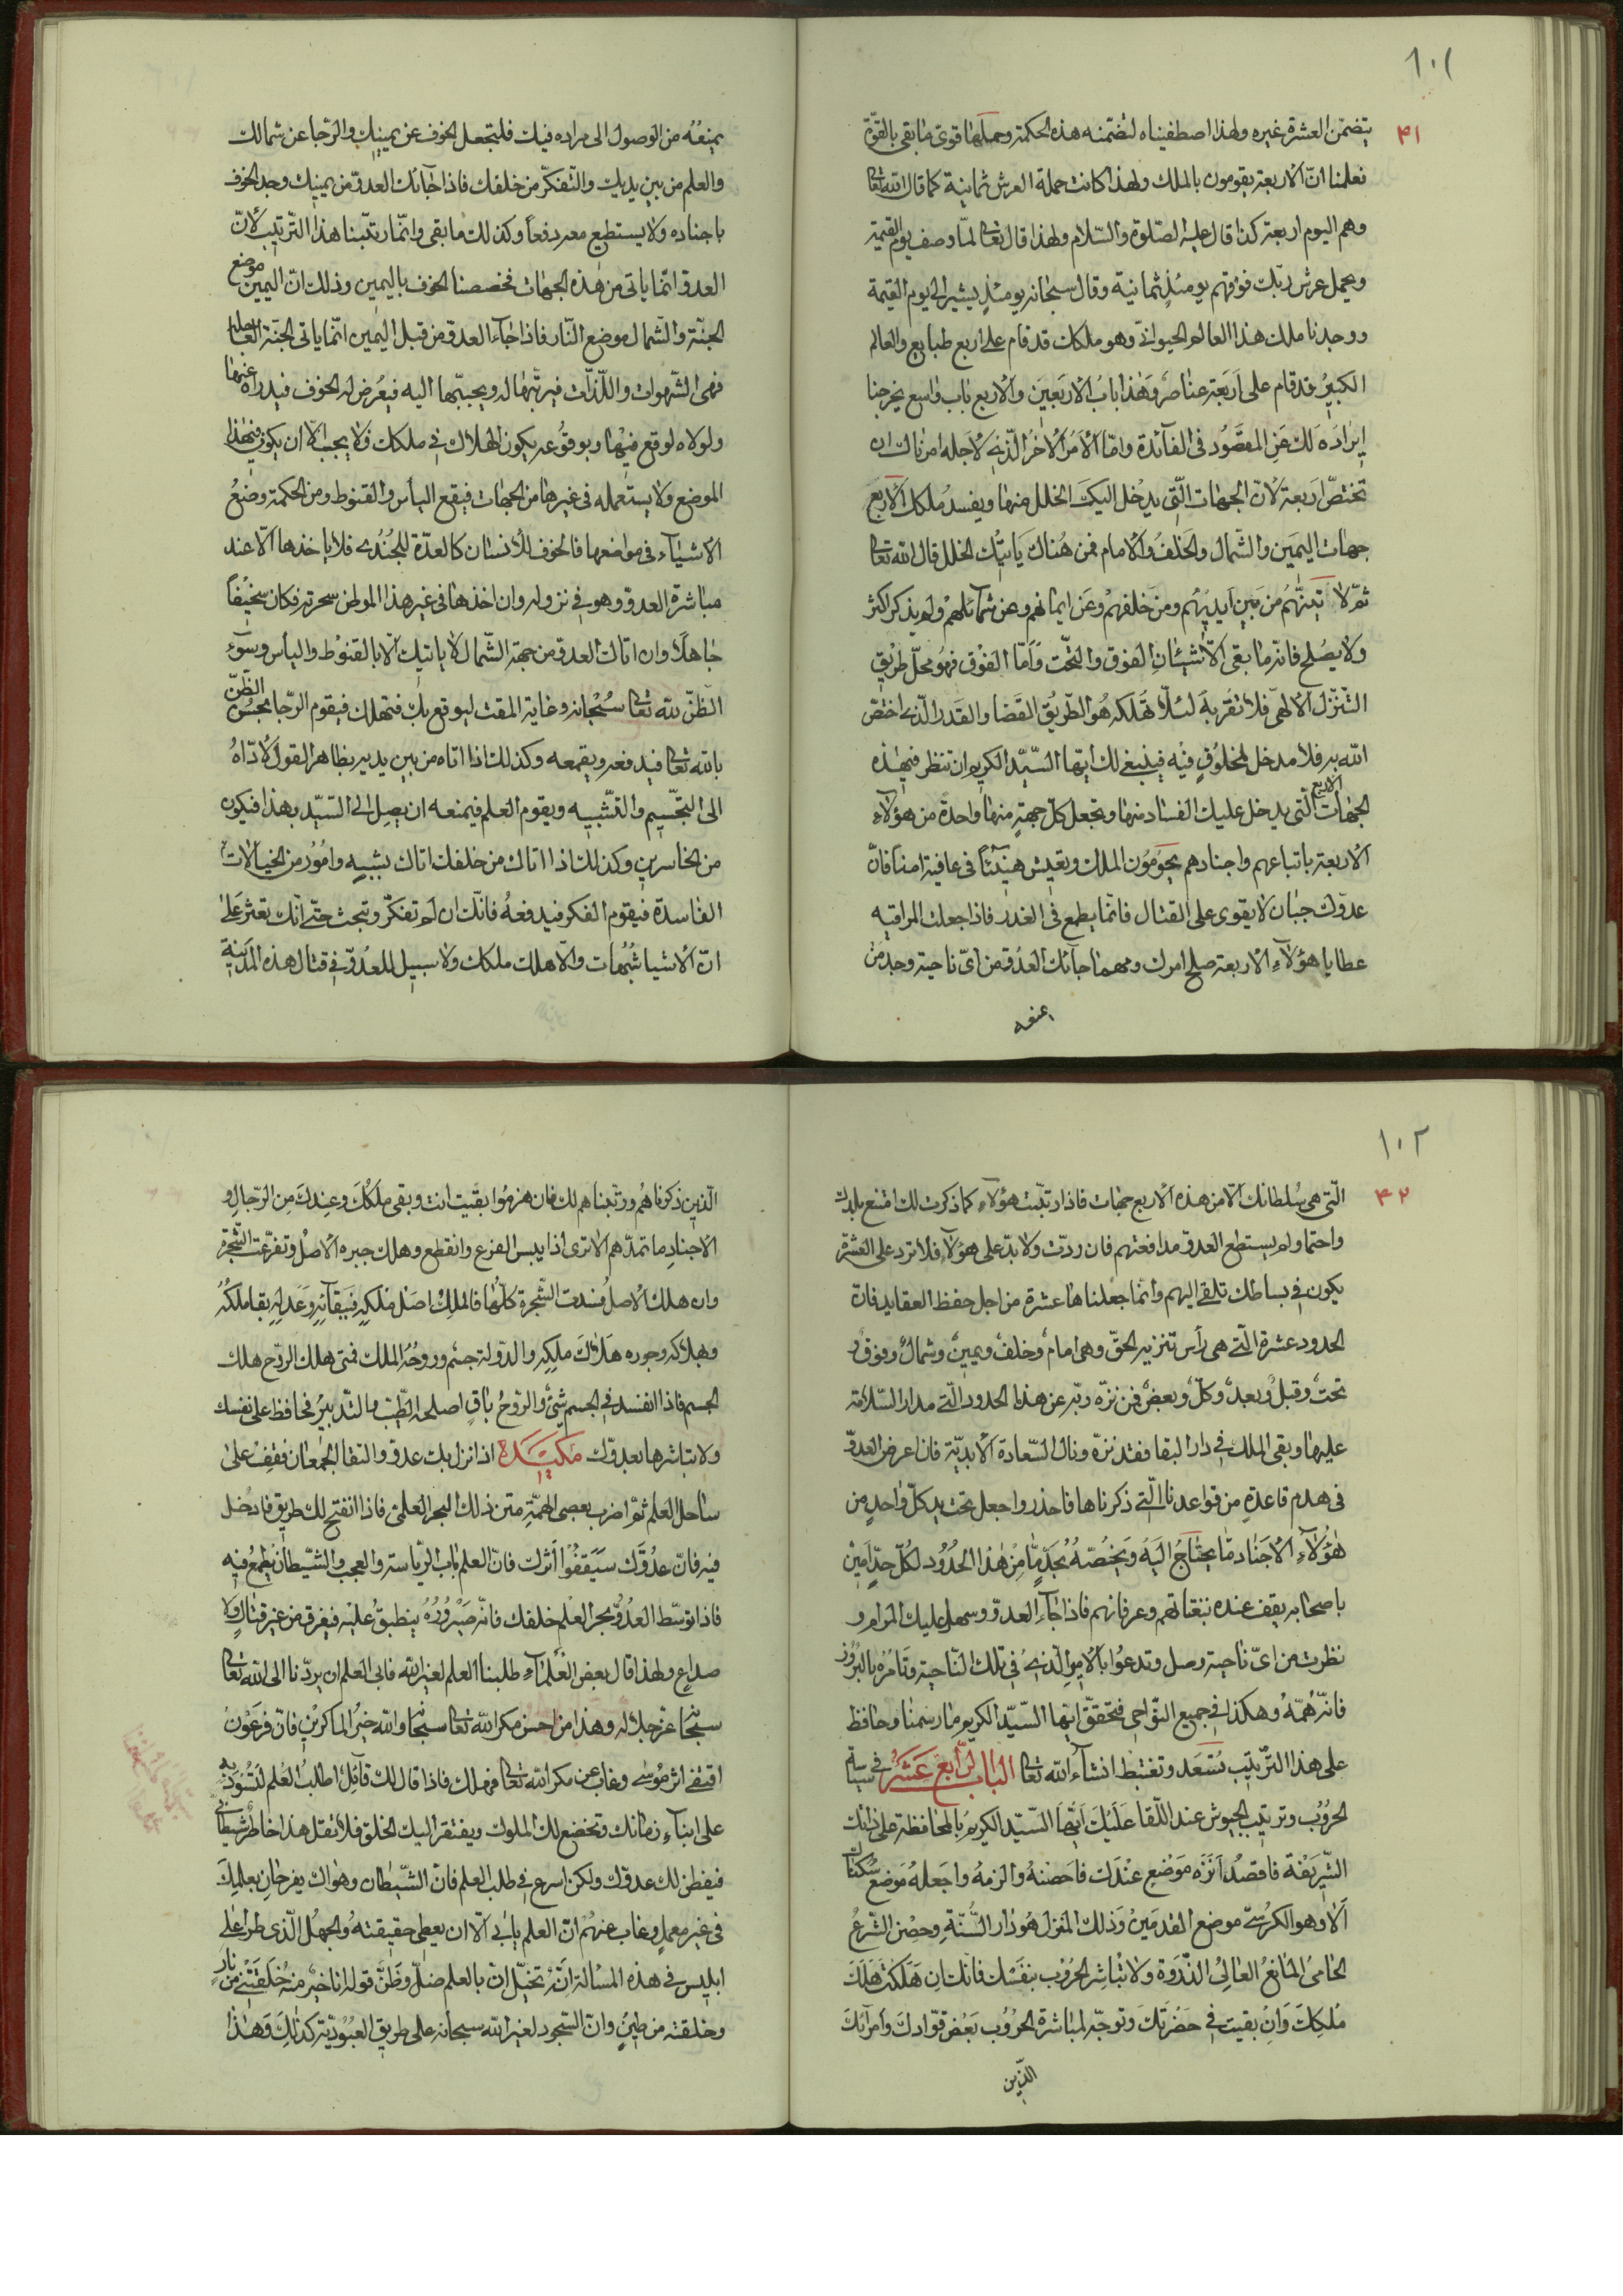 ١٠١
٤١
يتضمّن العشرة غيره ولهذا اصطفيناه لتضمّنه هذه الحكمة وحملها قوى ما بقى بالقوّة
فعلمنا انّ الاربعة يقومون بالملك ولهذا كانت حملة العرش ثمانية كما قال الله تعالى
وهم اليوم اربعة كذا قال عليه الصّلوة والسّلام ولهذا قال تعالى لمّا وصف يوم القيمة
ويحمل عرش ربّك فوقهم يومئذٍ ثمانية وقال سبحانه يومئذٍ يشير الى يوم القيمة
ووجدنا ملك هذا العالم الحيوانىّ وهو ملكك قد قام على اربع طبايع والعالم
الكبيرُ قد قام على اَربَعة عناصر وَهٰذا بابُ الاربَعِينَ والاربع باب واسع يخرجنا
ايرادَه لك عَنِ المقصُود فى الفائدة وامّا الامَر الاخرُ الّذى لاجله امرناك ان
تختصّ اربعة لانّ الجهات الّتى يدخل اليك الخلل منها ويفسدُ ملكك الاربَع
جهات اليمَين والشّمال والخَلفُ والامام فمن هُناك يَأتيك الخلل قال الله تعالى
ثمّ لاتينّهُم من بين ايديهُم ومن خَلفهمْ وعَن ايمانهم وعن شمائلهمْ ولم يذكر اكثر
ولا يصُلح فانّه ما بقى الّا شيئان الفوق والتّحت وَاَمّا الفَوْق فهُو محلّ طريق
التّنزّل الالهىّ فلا تقربهَ لئلّا تهلكه هُو الطّريقُ القَضا والقدر الّذى اختصّ
الله به فلا مدخل لمخلُوقٍ فيْه فينبغى لك ايّها السّيّد الكريم ان تنظر فى هٰذه
الجهات الاربع الّتى يدخل عليك الفساد منها وتجعل كلّ جهةٍ منها واحدة من هؤلاءِ
الاربعة باتباعهم واجنادهم يحوَمُون الملك وتعيش هَنِيئًا فى عافية امنا فانّ
عدوّك جبان لا يقوى على القتال فانّما يطمع فى الغدر فاذا جعلت المراقبه
عطايا هؤلآءِ الاربعة صلح امرك ومهما جآئك العدُو من اىّ ناحية وجد من
يمنعه
يمنعُه من الوصول الى مراده فيك فلتجعل الخوف عن يمينك والرّجا عن شمالك
والعلم من بين يديك والتّفكّر من خلفك فاذا جآئك العدوّ من يمينك وجد الخوف
باجناده ولا يستطيع معه دفعاً وكذلك ما بقى وانّما رتّبنا هذا التّرتيب لانّ
العدوّ انّما ياتى من هٰذه الجهات فخصصنا الخوف باليمين وذلك انّ اليمين موضع
الجنّة والشّمال موضع النّار فاذا جاء العدوّ من قبل اليمين انّما ياتى الجنّة العاجلة
فهى الشّهوات واللّذّات فيزيّنها له ويحبّبها اليه فيعرُض له الخوف فيدراه عنها
ولولاه لوقع فيْها وبوقُوعه يكون الهلاك فى ملكك فلا يجب الّا ان يكون فى هٰذا
الموضع ولا يستعمله فى غيرها من الجهات فيقع اليأس والقنوط ومن الحكمة وضعُ
الاشياء فى مواضعها فالخوف للانسان كالعدّة للجُندى فلا ياخذها الّا عند
مباشرة العدوّ وهو فى نزوله وان اخذها فى غير هذا الموطن سخر به فكان سخيْفاً
جاهلًا وان اتاك العدوّ من جهة الشّمال لا ياتيك الّا بالقنوْط والياْس وسوَء
الظّنّ لله تعالى سُبْحانه وغاية المقت ليوقع بك فتهلك فيقوم الرّجا بحُسُن الظّنّ
بالله تعالى فيدفعه ويقمعه وكذلك اذا اتاه من بين يديه بظاهر القول لادّاهُ
الى التّجسيم والتّشبيه ويقوم العلم فيمنعه ان يصِل الى السّيّد بهذا فيكون
من الخاسرين وكذلك اذا اتاك من خلفك اتاك بشبهٍ وامُور من الخيالات
الفاسدة فيقوم الفكر فيدفعهُ فانّك ان لم تفكّر وتبحث حتّى انّك تعثر علىٰ
انّ الاشيا شبُهات والّا هلك ملكك ولا سبيل للعدُوّ فى قتال هذه المدينة
١٠٢
٤٢
الّتى هى سُلطانك الّا من هذه الاربع جهات فاذا رتّبت هؤلآءِ كما ذكرت لك امتنع بلدك
واحتما ولم يستطع العدوّ مدافعتهم فان ردّت ولابدّ على هؤلآءِ فلا تزد على العشرة
يكون فى بساطك تلقى اليهم وانّما جعلناها عشرة من اجل حفظ العقايد فانّ
الحدود عشرة الّتى هى رأس تنزيه الحقّ وهى امامٌ وخلفٌ ويمينٌ وشمالٌ وفوقٌ و
تحتٌ وقبلٌ وبعدٌ وكلٌّ وبعضٌ فمن نزّه ربّه عن هٰذه الحدود الّتى مدار السّلامة
عليها وبقى الملك فى دار البقا فقد نزّه ونال السّعادة الابديّة فان اعرض العدوّ
فى هدم قاعدةٍ من قواعدنا الّتى ذكرناها فاحذر واجعل تحت يد كلّ واحدٍ من
هٰؤُلآءِ الاجناد مّا يحتاجُ اليَهْ ويَخُصّهُ بحَدٍّ مّا مِنْ هٰذا الحُدُود لكلّ حدٍّ اَمينْ
باصحابه يقف عنده بثقاتهم وعرفانهم فاذا جآءَ العدوّ وسهل عليك المرام و
نظرت من اىّ ناحية وصل وتدعُوا بالامِيرِ الّذى فى تلك النّاحية وتامُرُه بالبرُوز
فانّه هُمّهُ وهكذا فى جميع النّواحى فتحقّق ايّها السّيّد الكريم ما رسمنا وحافظ
على هذا التّرتيب تسْعَد وتغتبط انشآءَ الله تعالى الباب الرّابع عَشَرُ فى سياسة
الحرُوب وترتيب الجيوش عند اللّقا عَلَيْكَ ايّهَا السّيّد الكريمُ بالمحافظة على ذاتك
الشّريفة فاقصدُ اَنْزَه مَوْضع عنْدَك فاَحصنهُ والزمهُ واجعلهُ مَوضعُ سُكناك
اَلا وهو الكرُسىّ موضع القدمَينْ وَذلك المنزل هُو دار السُّنّةِ وحِصْن الشّرعُ
الحامىُ المانعُ العالىُ الذّروة ولا تُباشِر الحرُوْب بنفَسْك فانّك اِن هَلَكتْ هَلَكَ
مُلكِكَ وَاِنْ بقيت فى حَضرتكَ وتوجّه لمباشرة الحرُوب بَعْض قوّادكَ وَامرآئكَ
الّذين
الّذين ذكرناهُم ورتّبناهم لك فان هزمُوا بقيت انت وبقى ملكُكَ وعِندكَ مِن الرّجالِ و
الاجنادِ ما تمدّهم الا ترى اذا يبس الفرع وانقطع وهلك جبره الاصْلُ وتفرّعت الشّجرة
وان هلك الاصلُ فسَدت الشّجرة كلّهُا فالملِكُ اصَل مُلكِهٖ فبَبقآئِهٖ وَعَدلِهٖ بقا ملكُهُ
وبهلاكه وجوره هَلاكَ ملكِهِ والدّولة جسْم وروحُهُ الملك فمتى هلك الرّوح هلك
الجسم فاذا انفسد فى الجسم شىْءٌ والرّوحُ باقٍ اصلحه الطّبّ والتّدبيرُ فحافظ على نفسك
ولا تباشرها بعدوّك مَكيدَة اذا نزل بك عدوّ والتقا الجَمعان فقفْ علىٰ
ساحل العلم ثمّ اضرب بعصى الهمّةِ متن ذلك البحر العلمىّ فاذا انفتح لك طريق فادخل
فيه فانّ عدُوّك سَيَقفُوا أثرك فانّ العلم باب الرّياسة والعجب والشّيطان يطمعُ فيه
فاذا توسّط العَدُوّ بحر العلْم خلفك فانّه ضَرورة ينطبقُ عليْه فيغرق من غير قتالٍ ولا
صداعٍ ولهذا قال بعض العُلماءِ طلبنا العلم لغير الله فابى العلم ان يردّنا الى الله تعالى
سبحانه عزّ جلاله وهذا من احسن مكر الله تعالى سبحانه والله خيرُ الماكرين فانّ فرعَوْن
اقتفى اثر مُوسىٰ وغاب عن مكر الله تعالى فهلك فاذا قال لك قائِل اطلبُ العْلم لتسُود بهٖ
على ابناءِ زمانك وتخضع لك الملوك ويفتقر اليك الخلق فلا تقل هذا خاطر شيطانى
فيفطن لك عدوّك ولكن اسرع فى طلب العلم فانّ الشّيطان وهَواك يفرحانِ بعلمِكَ
فى غير معملٍ وغاب عنهُمْ انّ العلم يابى الّا ان يعطى حقيقتهُ والجهْل الّذى طرا على
ابليس فى هذه المسألة انّه تخيّل انّ بالعلم ضلّ وظَنّ قوله انا خيْر منهُ خلقتَنى من نارٍ
وخلقته من طينٍ وانّ السّجود لغير الله سبحانه على طريق العبُوديّة كذلكَ وَهٰذا